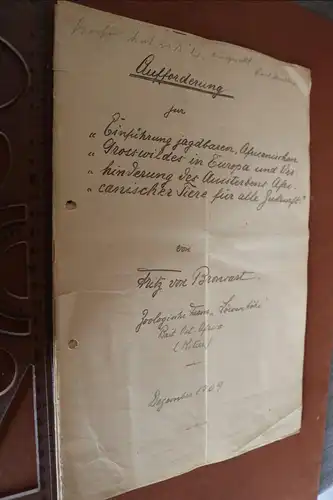 Aufforderung
zur
„Einführung jagdbaren, Afrikanischen
„Grosswildes in Europa und Ver
„hinderung des Aussterbens Afri
„canischer Tiere für alle Zukunft."
von
Fritz von Bronsart
Zoologische Farm,
Ost-Afrika
Dezember 1909